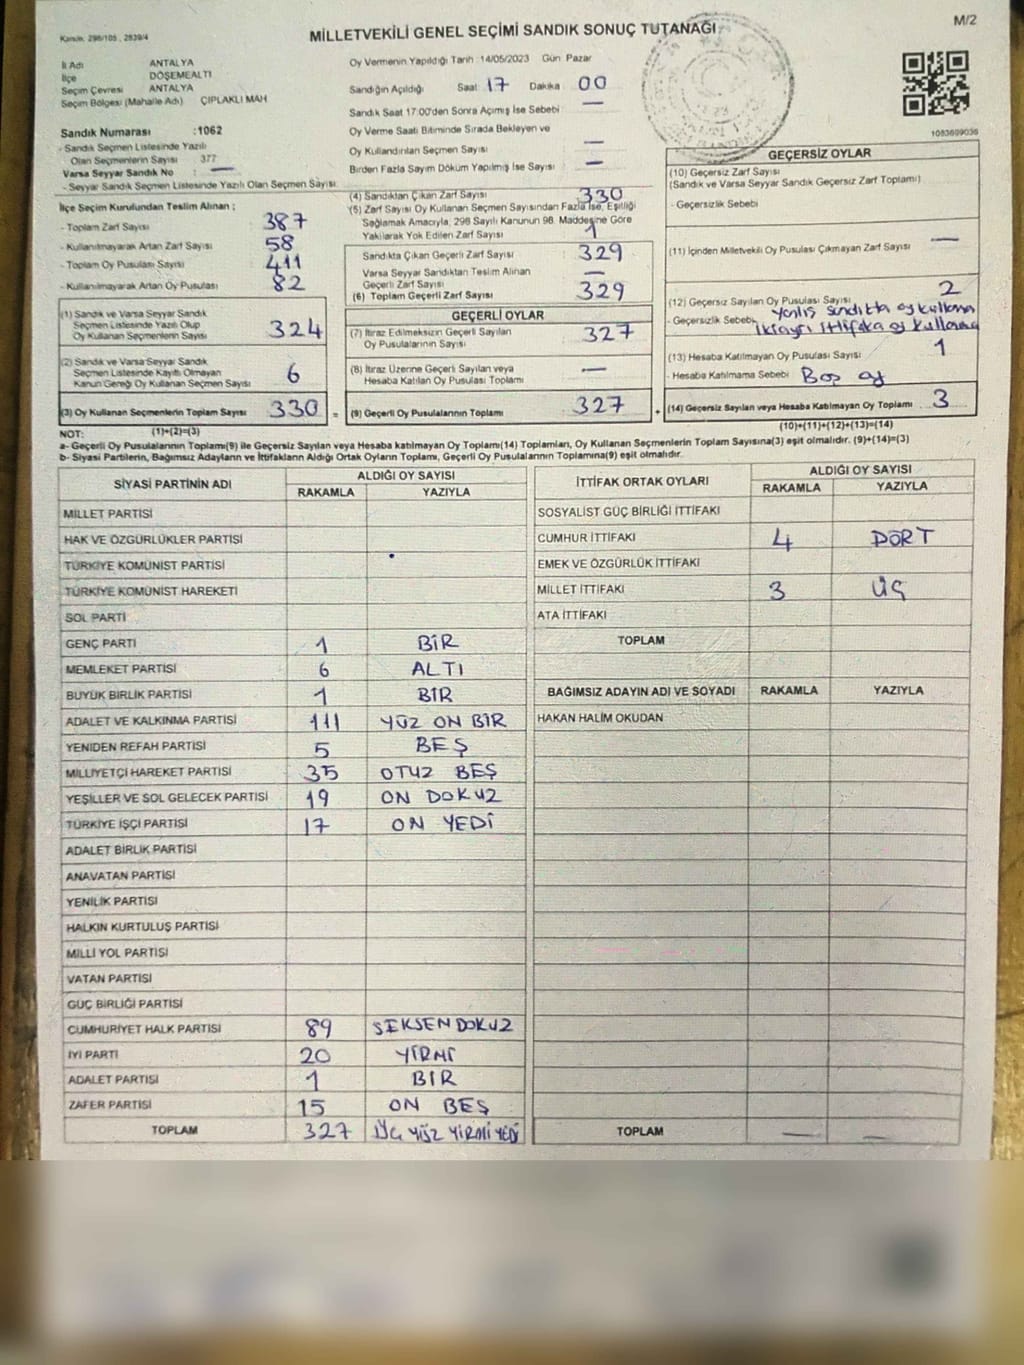 M/2
Kanun, 298/105 , 2839/4
MİLLETVEKİLİ GENEL SEÇİMİ SANDIK SONUÇ TUTANAĞI
İl Adı ANTALYA
İlçe DÖŞEMEALTI
Seçim Çevresi ANTALYA
Seçim Bölgesi (Mahalle Adı) ÇIPLAKLI MAH
Sandık Numarası :1062
- Sandık Seçmen Listesinde Yazılı
Olan Seçmenlerin Sayısı 377
Varsa Seyyar Sandık No : —
- Seyyar Sandık Seçmen Listesinde Yazılı Olan Seçmen Sayısı
Oy Vermenin Yapıldığı Tarih :14/05/2023 Gün Pazar
Sandığın Açıldığı Saat 17 Dakika 00
Sandık Saat 17:00'den Sonra Açımış İse Sebebi —
Oy Verme Saati Bitiminde Sırada Bekleyen ve
Oy Kullandırılan Seçmen Sayısı —
Birden Fazla Sayım Döküm Yapılmış İse Sayısı —
1083609036
İlçe Seçim Kurulundan Teslim Alınan ;
- Toplam Zarf Sayısı 387
- Kullanılmayarak Artan Zarf Sayısı 58
- Toplam Oy Pusulası Sayısı 411
- Kullanılmayarak Artan Oy Pusulası 82
(1) Sandık ve Varsa Seyyar Sandık
Seçmen Listesinde Yazılı Olup
Oy Kullanan Seçmenlerin Sayısı 324
(2) Sandık ve Varsa Seyyar Sandık
Seçmen Listesinde Kayıtlı Olmayan
Kanun Gereği Oy Kullanan Seçmen Sayısı 6
(3) Oy Kullanan Seçmenlerin Toplam Sayısı 330 =
(1)+(2)=(3)
(4) Sandıktan Çıkan Zarf Sayısı 330
(5) Zarf Sayısı Oy Kullanan Seçmen Sayısından Fazla İse, Eşitliği
Sağlamak Amacıyla, 298 Sayılı Kanunun 98. Maddesine Göre
Yakılarak Yok Edilen Zarf Sayısı 1
Sandıkta Çıkan Geçerli Zarf Sayısı : 329
Varsa Seyyar Sandıktan Teslim Alınan
Geçerli Zarf Sayısı —
(6) Toplam Geçerli Zarf Sayısı 329
GEÇERLİ OYLAR
(7) İtiraz Edilmeksizin Geçerli Sayılan
Oy Pusulalarının Sayısı : 327
(8) İtiraz Üzerine Geçerli Sayılan veya
Hesaba Katılan Oy Pusulası Toplamı : —
(9) Geçerli Oy Pusulalarının Toplamı : 327 +
GEÇERSİZ OYLAR
(10) Geçersiz Zarf Sayısı
(Sandık ve Varsa Seyyar Sandık Geçersiz Zarf Toplamı)
- Geçersizlik Sebebi
(11) İçinden Milletvekili Oy Pusulası Çıkmayan Zarf Sayısı —
(12) Geçersiz Sayılan Oy Pusulası Sayısı 2
- Geçersizlik Sebebi Yanlış sandıkta oy kullanma
İki ayrı ittifaka oy kullanma
(13) Hesaba Katılmayan Oy Pusulası Sayısı 1
- Hesaba Katılmama Sebebi Boş oy
(14) Geçersiz Sayılan veya Hesaba Katılmayan Oy Toplamı : 3
(10)+(11)+(12)+(13)=(14)
NOT:
a- Geçerli Oy Pusulalarının Toplamı(9) ile Geçersiz Sayılan veya Hesaba katılmayan Oy Toplamı(14) Toplamları, Oy Kullanan Seçmenlerin Toplam Sayısına(3) eşit olmalıdır. (9)+(14)=(3)
b- Siyasi Partilerin, Bağımsız Adayların ve İttifakların Aldığı Ortak Oyların Toplamı, Geçerli Oy Pusulalarının Toplamına(9) eşit olmalıdır.
SİYASİ PARTİNİN ADI ALDIĞI OY SAYISI
RAKAMLA YAZIYLA
MİLLET PARTİSİ
HAK VE ÖZGÜRLÜKLER PARTİSİ
TÜRKİYE KOMÜNİST PARTİSİ
TÜRKİYE KOMÜNİST HAREKETİ
SOL PARTİ
GENÇ PARTİ 1 BİR
MEMLEKET PARTİSİ 6 ALTI
BÜYÜK BİRLİK PARTİSİ 1 BİR
ADALET VE KALKINMA PARTİSİ 111 YÜZ ON BİR
YENİDEN REFAH PARTİSİ 5 BEŞ
MİLLİYETÇİ HAREKET PARTİSİ 35 OTUZ BEŞ
YEŞİLLER VE SOL GELECEK PARTİSİ 19 ON DOKUZ
TÜRKİYE İŞÇİ PARTİSİ 17 ON YEDİ
ADALET BİRLİK PARTİSİ
ANAVATAN PARTİSİ
YENİLİK PARTİSİ
HALKIN KURTULUŞ PARTİSİ
MİLLİ YOL PARTİSİ
VATAN PARTİSİ
GÜÇ BİRLİĞİ PARTİSİ
CUMHURİYET HALK PARTİSİ 89 SEKSEN DOKUZ
İYİ PARTİ 20 YİRMİ
ADALET PARTİSİ 1 BİR
ZAFER PARTİSİ 15 ON BEŞ
TOPLAM 327 ÜÇ YÜZ YİRMİ YEDİ
İTTİFAK ORTAK OYLARI ALDIĞI OY SAYISI
RAKAMLA YAZIYLA
SOSYALİST GÜÇ BİRLİĞİ İTTİFAKI
CUMHUR İTTİFAKI 4 DÖRT
EMEK VE ÖZGÜRLÜK İTTİFAKI
MİLLET İTTİFAKI 3 ÜÇ
ATA İTTİFAKI
TOPLAM
BAĞIMSIZ ADAYIN ADI VE SOYADI RAKAMLA YAZIYLA
HAKAN HALİM OKUDAN
TOPLAM — —